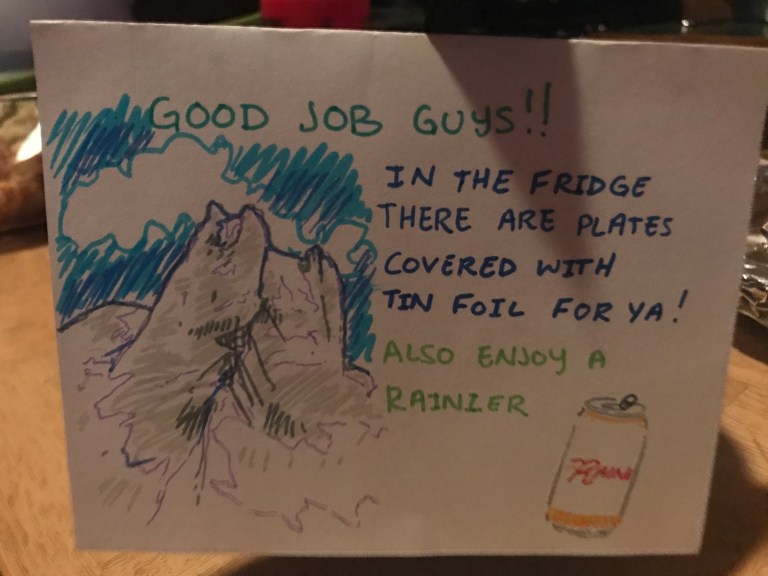 GOOD JOB GUYS!!
IN THE FRIDGE
THERE ARE PLATES
COVERED WITH
TIN FOIL FOR YA!
ALSO ENJOY A
RAINIER